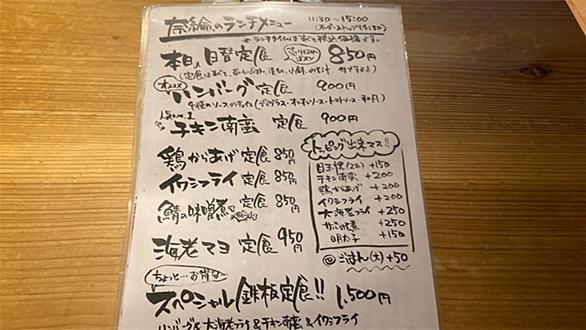 奈綸のランチメニュー 11:30~15:00
(オーダーストップ14:30)
※ランチタイムはすべて税込価格です。
本日の日替定食 売り切れゴメン 850円
(定食はすべて、 小鉢、みそ汁 付きます)
ハンバーグ定食 900円
4種のソースのチョイス(デミグラス・オニオンソース・トマトソース・和風)
人気No.1
チキン南蛮 定食 900円
鶏からあげ 定食 850円
イワシフライ 定食 850円
鯖の味噌煮 定食 850円
海老マヨ 定食 950円
ちょっと…お得な…
スペシャル鉄板定食!! 1,500円
ハンバーグ&大海老フライ&チキン南蛮&イワシフライ
トッピング出来マス!!
目玉焼(2コ) +150
チキン南蛮 +200
鶏からあげ +200
イワシフライ +200
大海老フライ +250
サバの味噌煮 +250
明太子 +150
@ごはん(大) +50